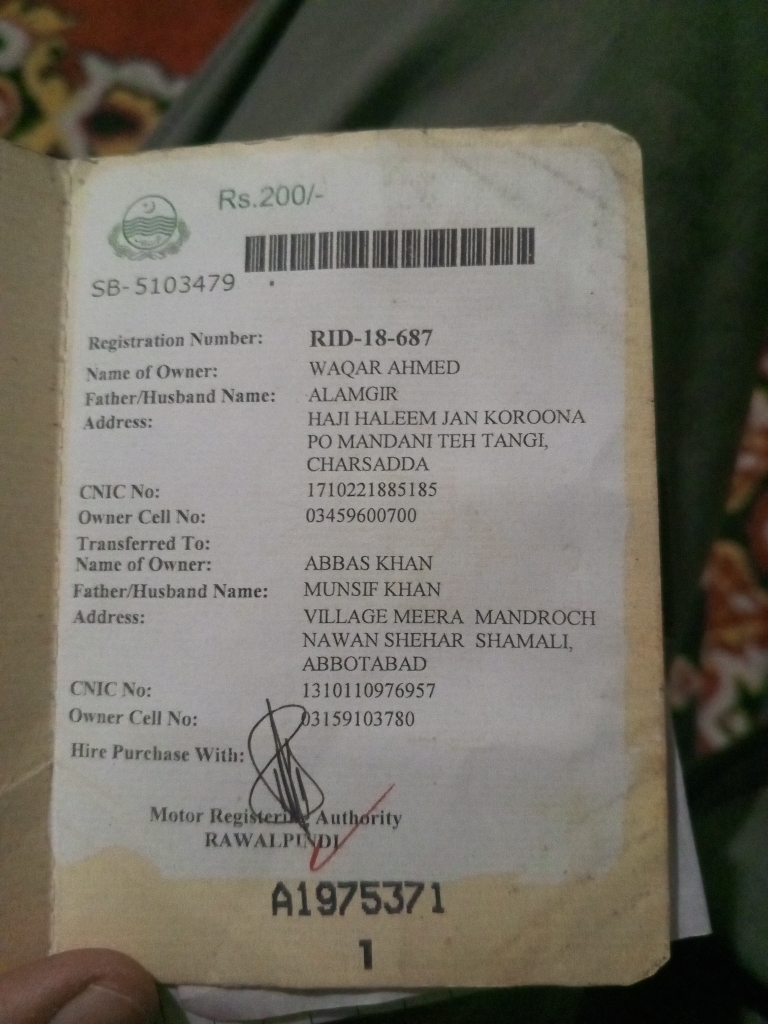 Rs.200/-
SB-5103479
Registration Number: RID-18-687
Name of Owner: WAQAR AHMED
Father/Husband Name: ALAMGIR
Address: HAJI HALEEM JAN KOROONA
PO MANDANI TEH TANGI,
CHARSADDA
CNIC No: 1710221885185
Owner Cell No: 03459600700
Transferred To:
Name of Owner: ABBAS KHAN
Father/Husband Name: MUNSIF KHAN
Address: VILLAGE MEERA MANDROCH
NAWAN SHEHAR SHAMALI,
ABBOTABAD
CNIC No: 1310110976957
Owner Cell No: 03159103780
Hire Purchase With:
Motor Registering Authority
RAWALPINDI
A1975371
1